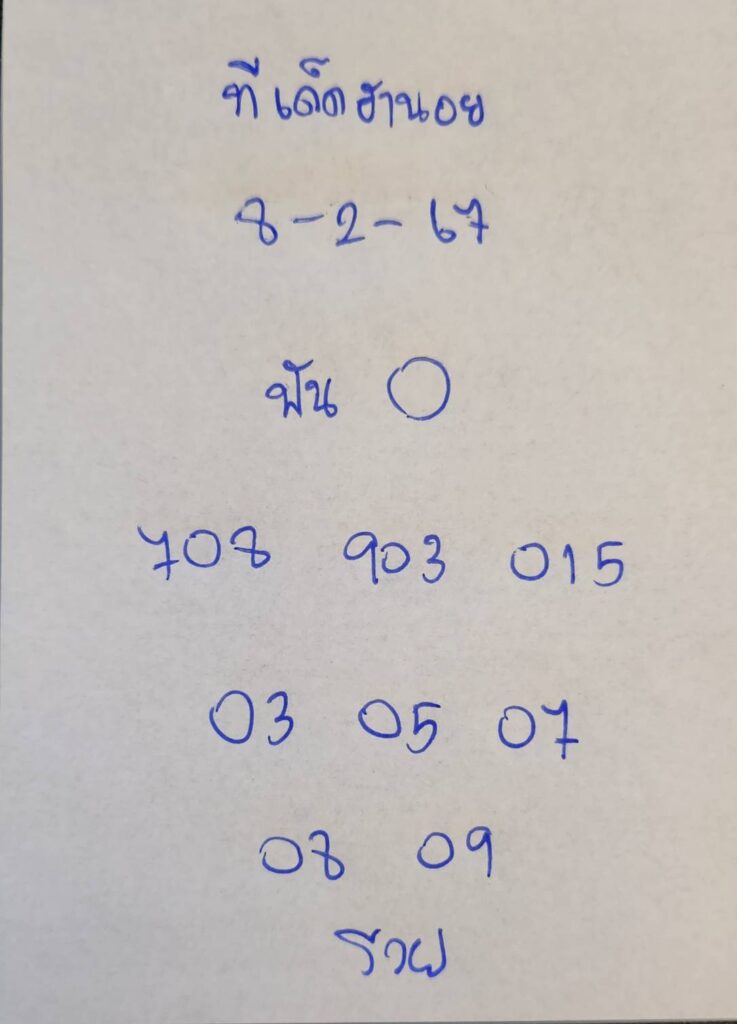 ทีเด็ดฮานอย
8-2-67
ฟัน 0
708 903 015
03 05 07
08 09
รวย